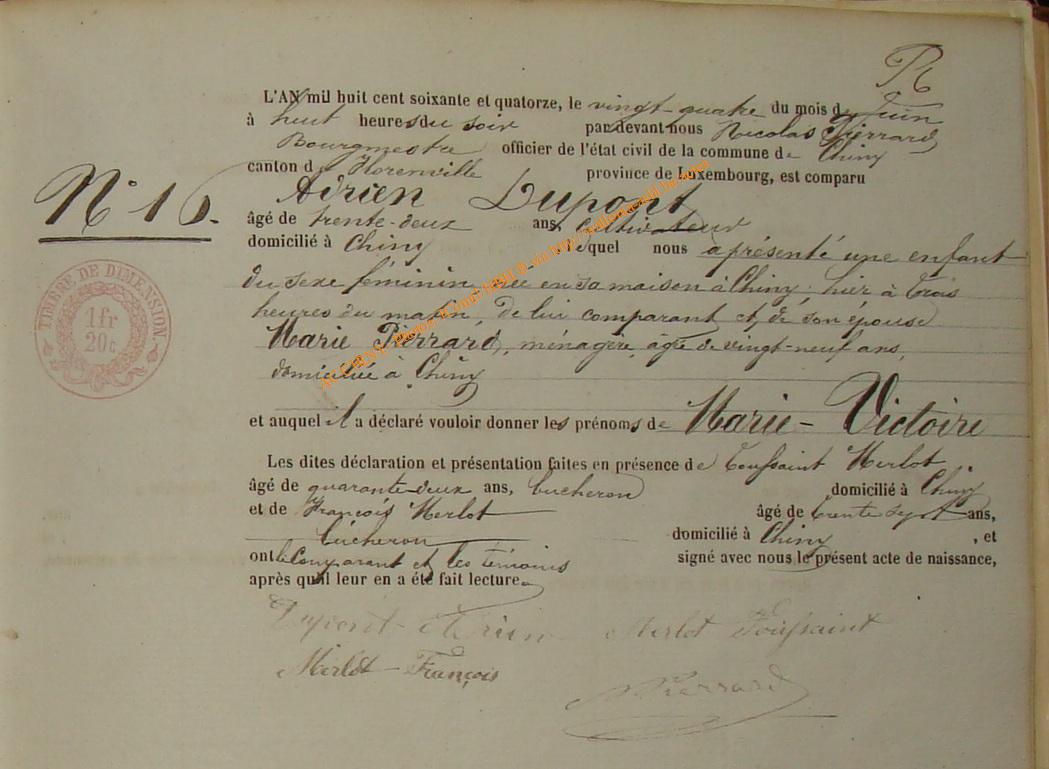 R
L'AN mil huit cent soixante et quatorze, le vingt-quatre du mois de Juin
à huit heures du soir par devant nous Nicolas Pierrard
Bourgmestre officier de l'état civil de la commune de Chiny
canton de Florenville province de Luxembourg, est comparu
N° 16. Adrien Dupont
âgé de trente-deux ans, Cultivateur
domicilié à Chiny lequel nous a présenté une enfant
du sexe féminin née en sa maison à Chiny, hier à trois
heures du matin, de lui comparant et de son épouse
Marie Pierrard, ménagère, âgée de vingt-neuf ans,
domiciliée à Chiny
et auquel il a déclaré vouloir donner les prénoms de Marie-Victoire
Les dites déclaration et présentation faites en présence de Toussaint Merlot
âgé de quarante-deux ans, bucheron domicilié à Chiny
et de François Merlot âgé de trente sept ans,
bûcheron domicilié à Chiny, et
ont le Comparant et les témoins signé avec nous le présent acte de naissance,
après qu'il leur en a été fait lecture.
Dupont-Adrien Merlot Toussaint
Merlot-François
Pierrard
TIMBRE DE DIMENSION
1fr
20c